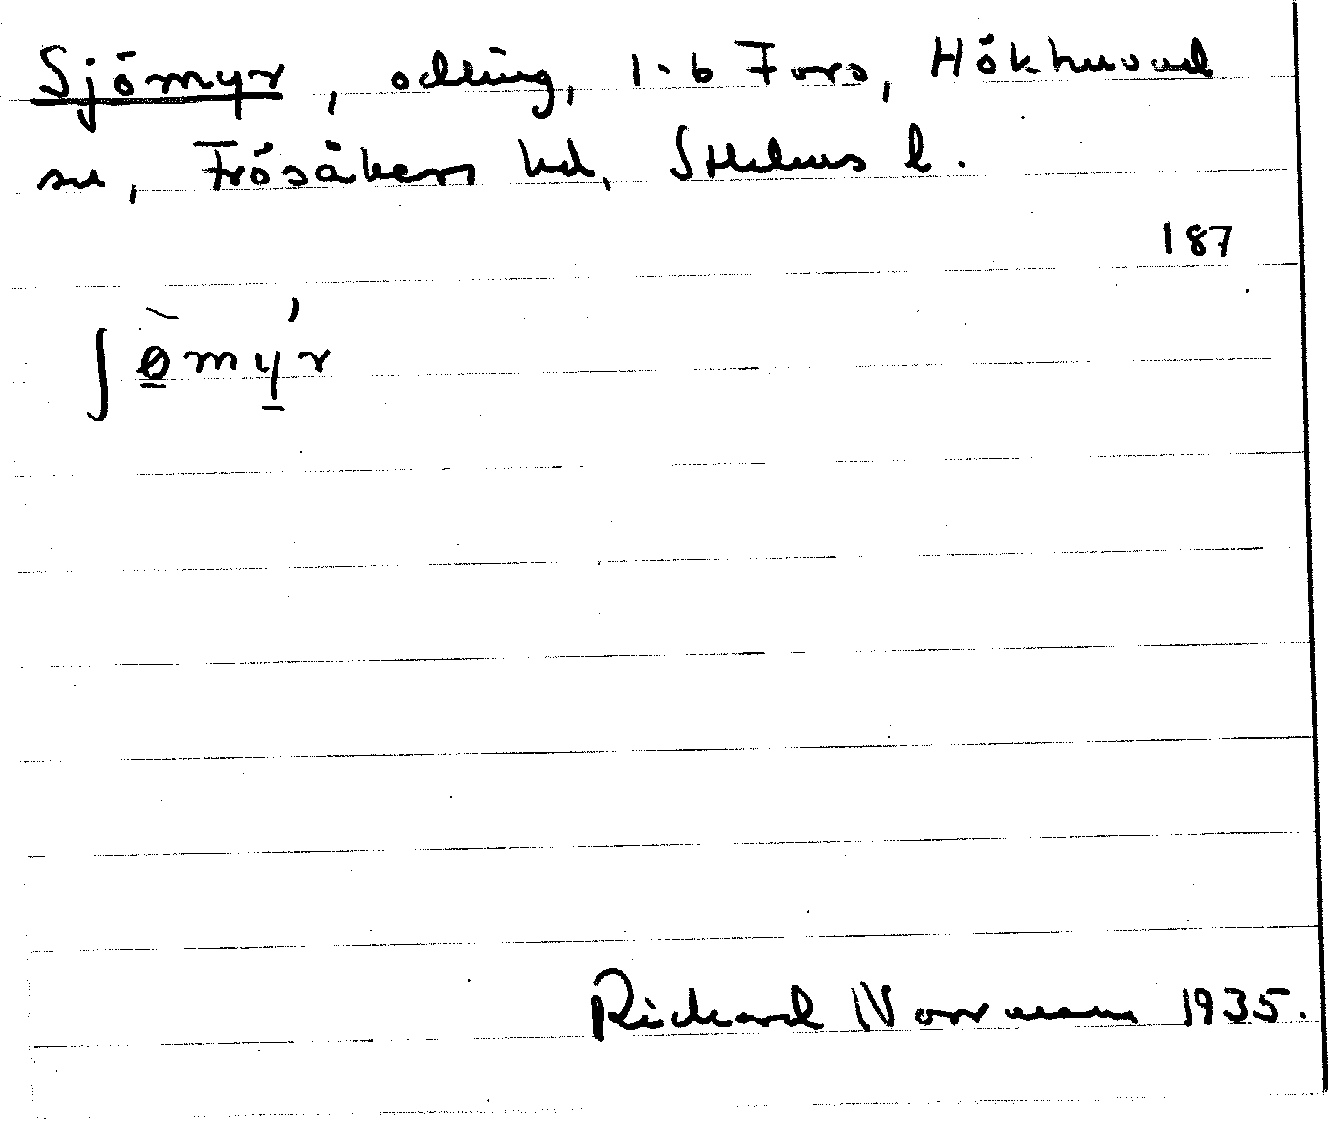 Sjömyr, odling, 1-6 Fors, Hökhuvud
sn, Frösåkers hd, Sthlms l.
187
ʃø̠̀mý̠r
Richard Norrman 1935.